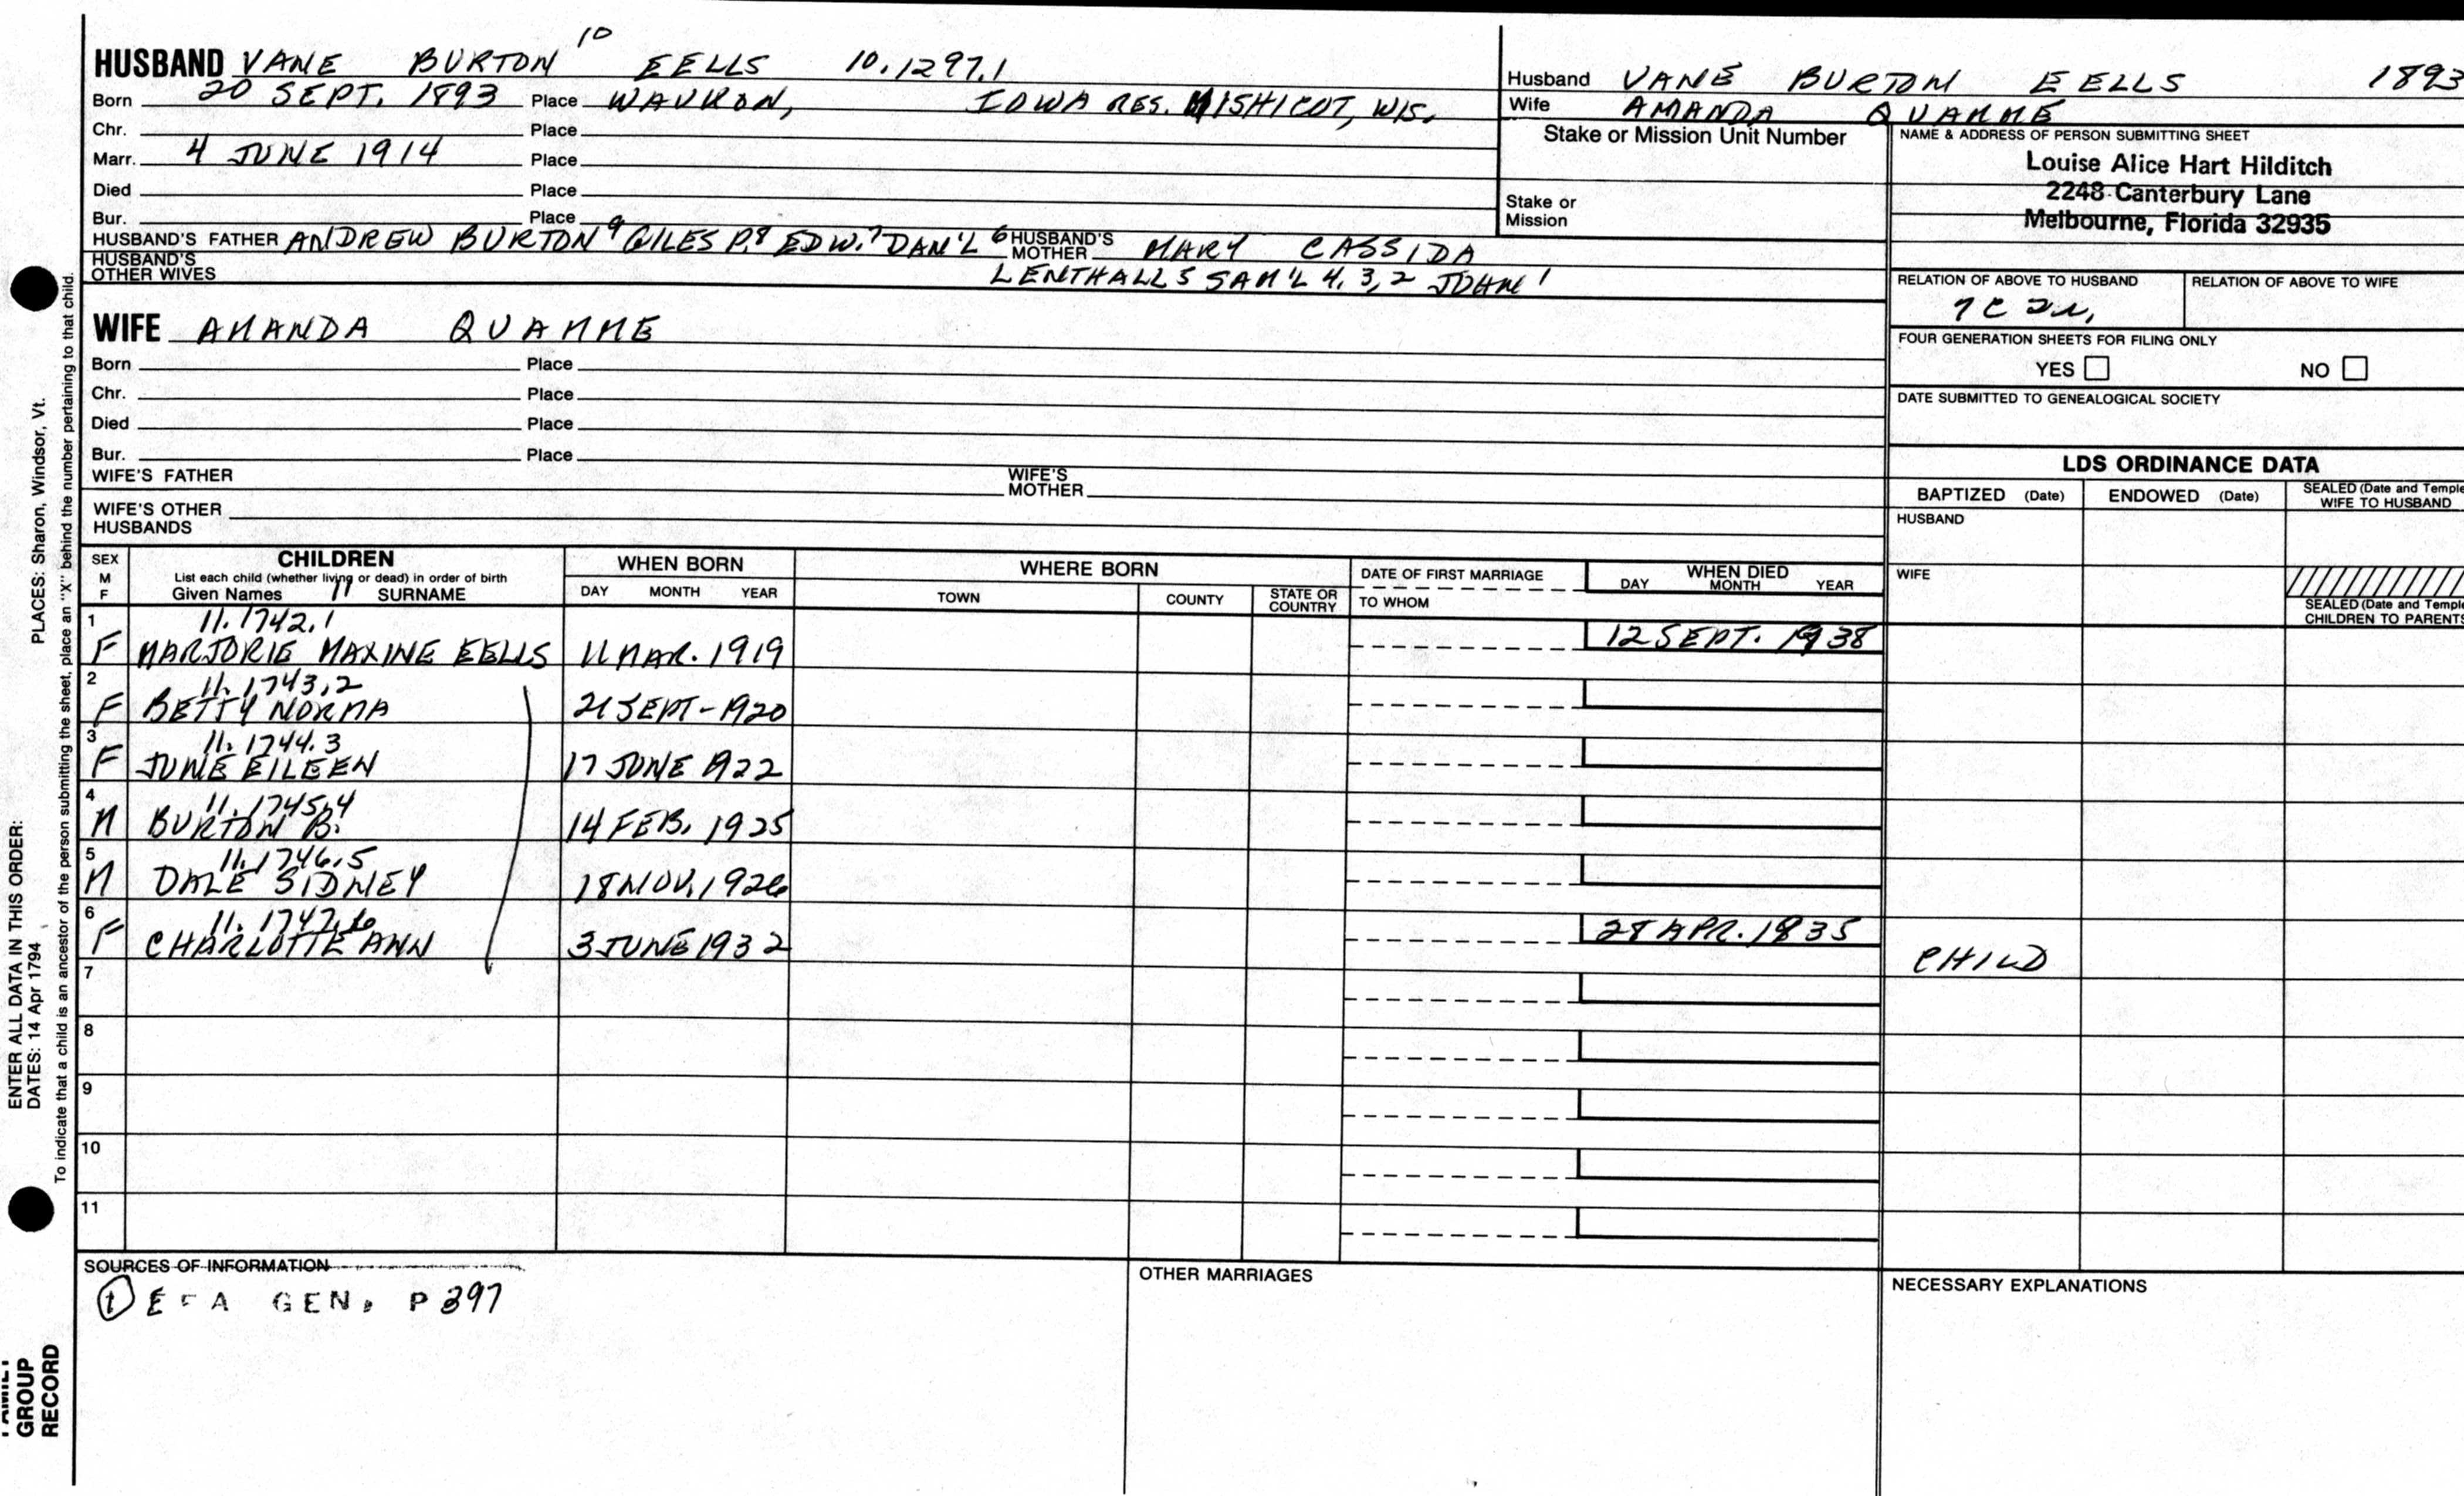 HUSBAND VANE BURTON 10 EELLS 10.1297.1
Born 20 SEPT. 1893 Place WAUKON, IOWA RES. MISHICOT, WIS.
Chr. Place
Marr. 4 JUNE 1914 Place
Died Place
Bur. Place
HUSBAND'S FATHER ANDREW BURTON 9 GILES P. 8 EDW. 7 DAN'L 6 HUSBAND'S MOTHER MARY CASSIDA
HUSBAND'S OTHER WIVES LENTHALL 5 SAM'L 4, 3, 2 JOHN 1
WIFE AMANDA QUAMME
Born Place
Chr. Place
Died Place
Bur. Place
WIFE'S FATHER WIFE'S MOTHER
WIFE'S OTHER HUSBANDS
Husband VANE BURTON EELLS 1893
Wife AMANDA QUAMME
Stake or Mission Unit Number
Stake or Mission
NAME & ADDRESS OF PERSON SUBMITTING SHEET
Louise Alice Hart Hilditch
2248 Canterbury Lane
Melbourne, Florida 32935
RELATION OF ABOVE TO HUSBAND RELATION OF ABOVE TO WIFE
7C
FOUR GENERATION SHEETS FOR FILING ONLY
YES NO
DATE SUBMITTED TO GENEALOGICAL SOCIETY
LDS ORDINANCE DATA
BAPTIZED (Date) ENDOWED (Date) SEALED (Date and Temple
WIFE TO HUSBAND
HUSBAND
WIFE
SEALED (Date and Temple
CHILDREN TO PARENTS
SEX M F
CHILDREN
List each child (whether living or dead) in order of birth
Given Names 11 SURNAME
WHEN BORN
DAY MONTH YEAR
WHERE BORN
TOWN COUNTY STATE OR COUNTRY
DATE OF FIRST MARRIAGE
TO WHOM
WHEN DIED
DAY MONTH YEAR
1 11.1742.1
F MARJORIE MAXINE EELLS 11 MAR. 1919 12 SEPT. 1938
2 11.1743.2
F BETTY NORMA 21 SEPT - 1920
3 11.1744.3
F JUNE EILEEN 17 JUNE 1922
4 11.1745.4
M BURTON B. 14 FEB. 1925
5 11.1746.5
M DALE SIDNEY 18 NOV. 1926
6 11.1747.6
F CHARLOTTE ANN 3 JUNE 1932 28 APR. 1835 CHILD
7
8
9
10
11
SOURCES OF INFORMATION
1 EFA GEN. P 397
OTHER MARRIAGES
NECESSARY EXPLANATIONS
ENTER ALL DATA IN THIS ORDER:
DATES: 14 Apr 1794 PLACES: Sharon, Windsor, Vt.
To indicate that a child is an ancestor of the person submitting the sheet, place an "X" behind the number pertaining to that child.
FAMILY
GROUP
RECORD